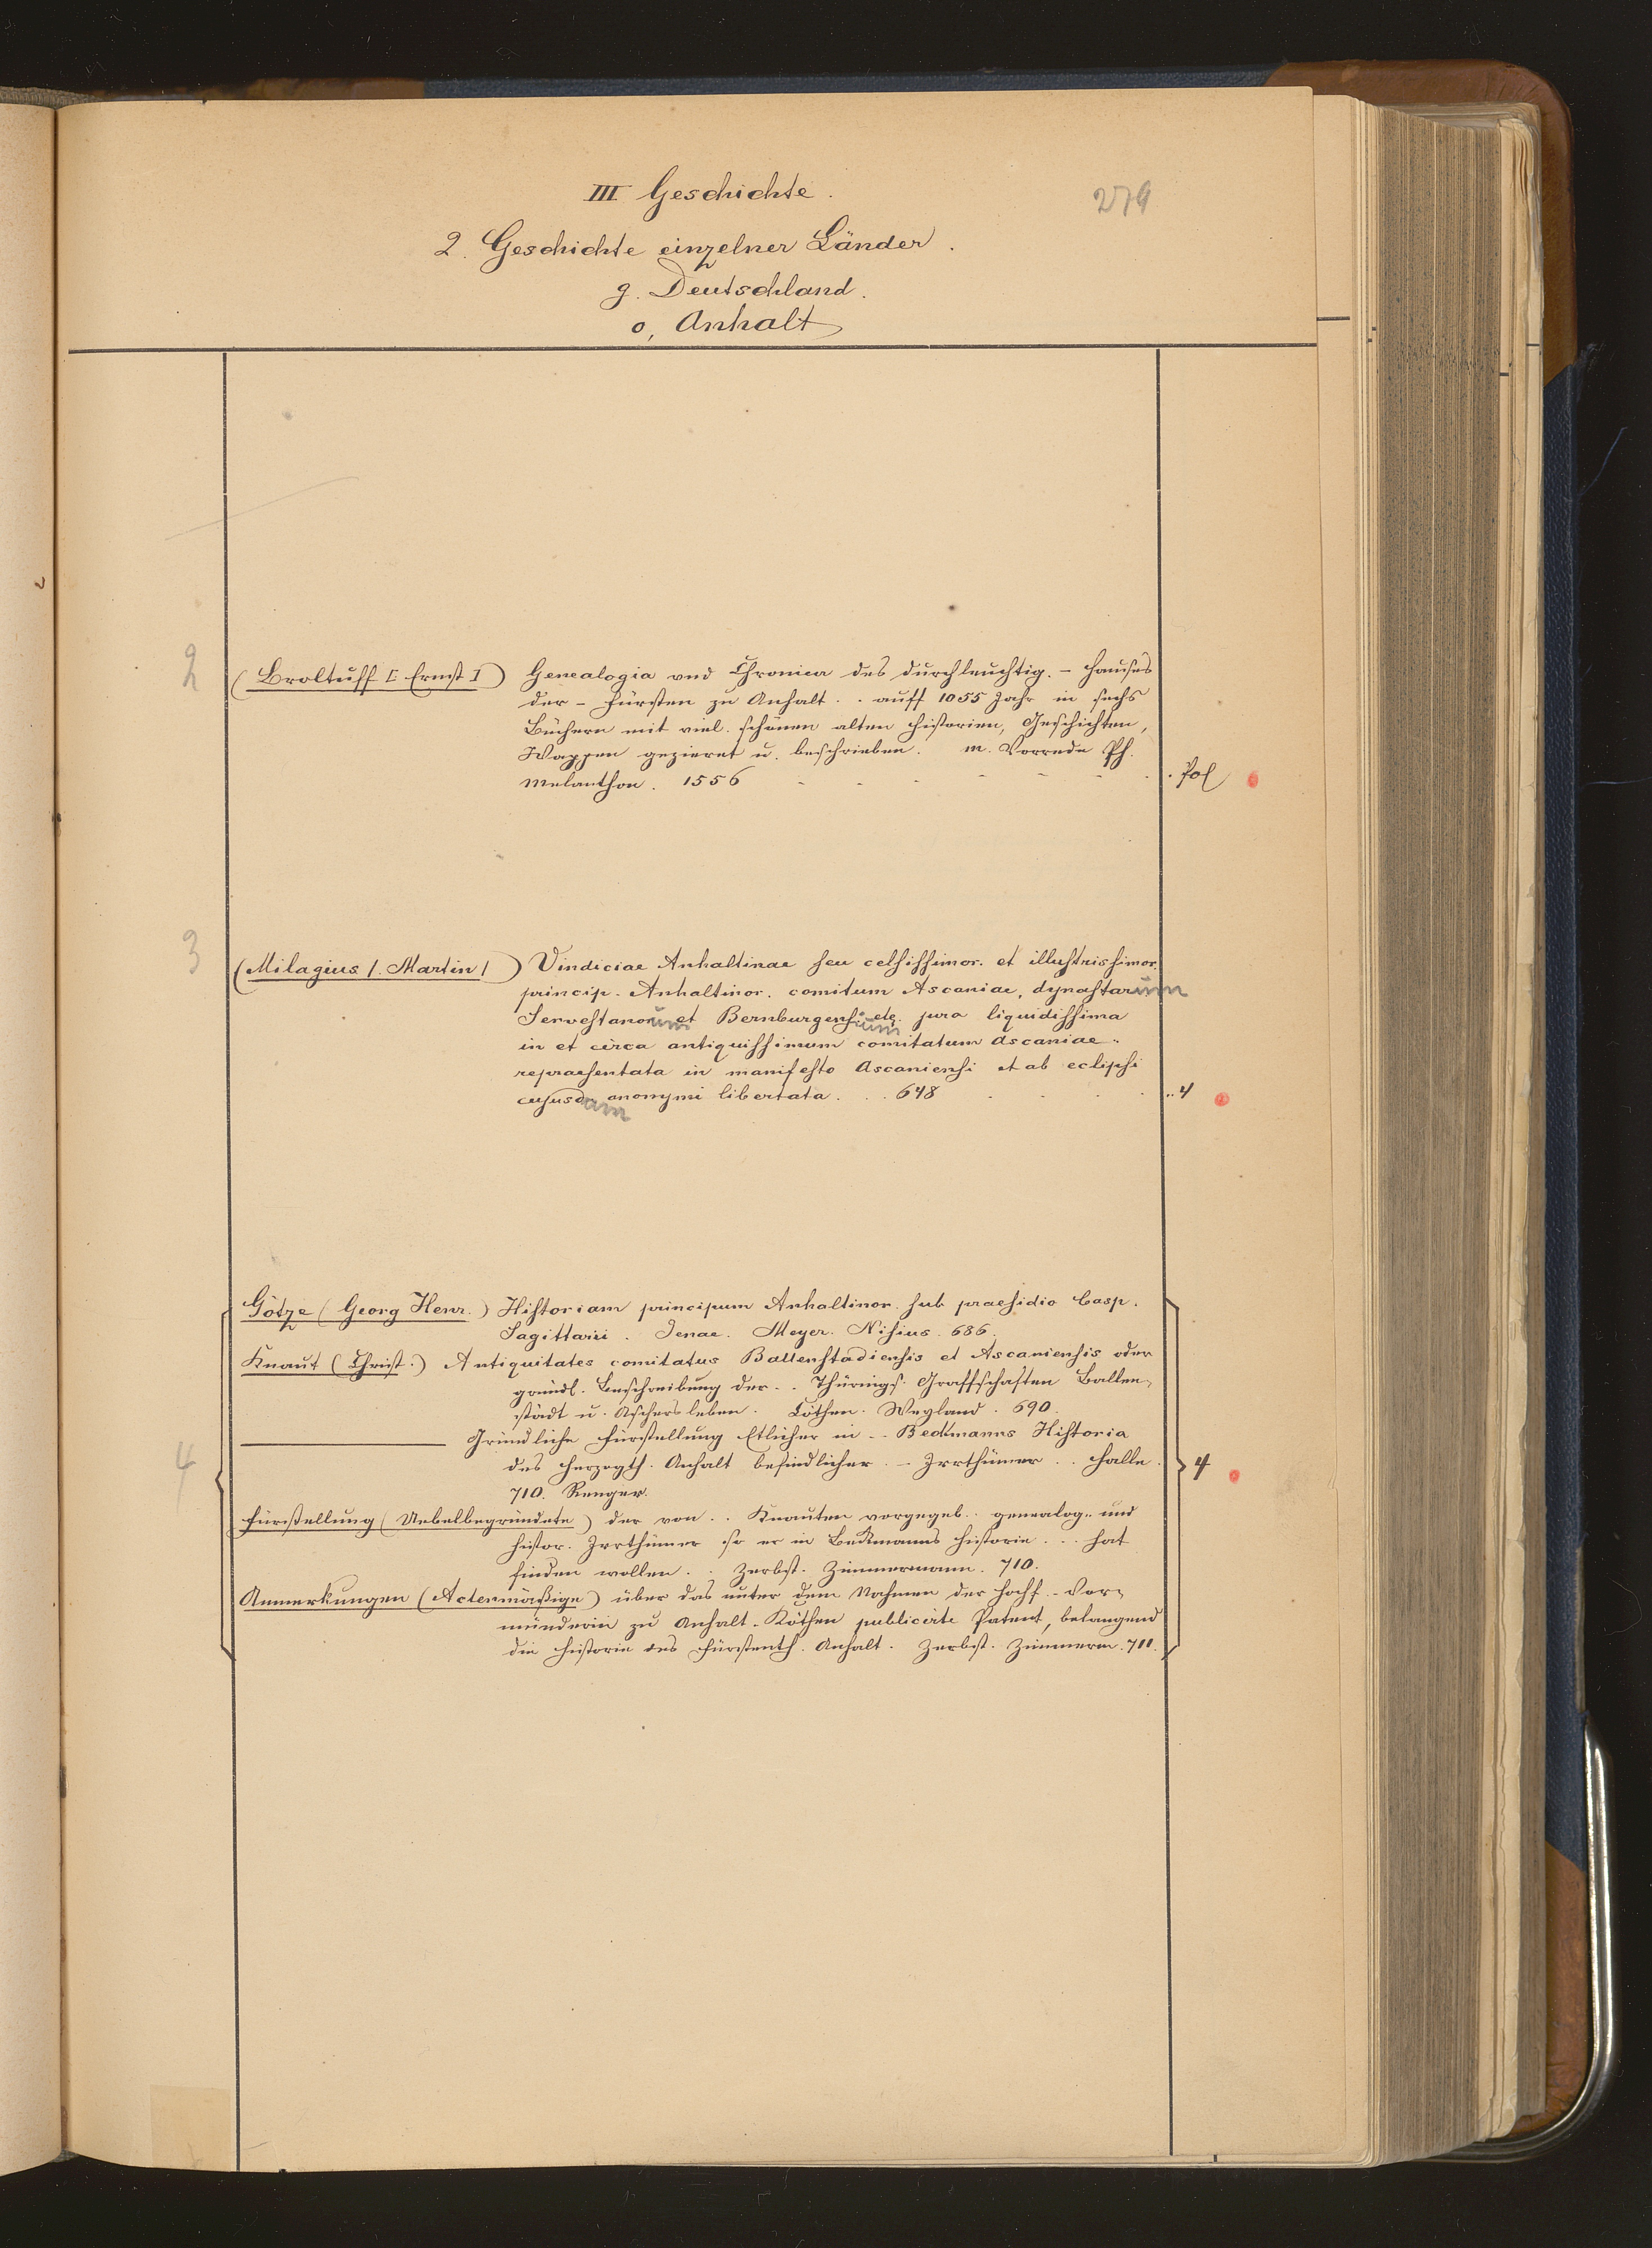 III Geschichte.
279
2. Geschichte einzelner Länder.
g. Deutschland.
o, Anhalt
2
(Broltuff [Ernst]) Genealogia vnd Chronica des durchleuchtig. - Hauses
der - Fürsten zu Anhalt . . auff 1055 Jahr in sechs
Büchern mit viel. schönen alten Historien, Geschichten,
Wappen gezieret u. beschrieben. m. Vorrede Ph.
Melanthon. 1556 - - - - - - . Fol
3
(Milagius /. Martin /) Vindiciae Anhaltinae seu celsissimor. et illustrissimor.
princip. Anhaltinor. comitum Ascaniae, dynastarum
Servestanorum et Bernburgensium etc. jura liquidissima
in et circa antiquissimum comitatum Ascaniae..
repraesentata in manifesto Ascaniensi et ab eclipsi
cujusdam anonymi libertata . . . 648 . . . . .. 4
Götze (Georg Henr.) Historiam principum Anhaltinor. sub praesidio Casp.
Sagittarii. Jenae. Meyer. Nisius. 686.
Knaut (Christ.) Antiquitates comitatus Ballenstadiensis et Ascaniensis oder
gründl. Beschreibung der . . Thürings. Graffschaften Ballen-
städt u. Aschersleben. Cöthen. Wegland. 690.
——— Gründliche Fürstellung Etlicher in - - Beckmanns Historia
des Herzogth. Anhalt befindlicher - Irrthümer . . Halle.
4
4
710. Renger.
Fürstellung (Uebelbegründete) der von . . Knauten vorgegeb. genealog.. und
histor. Irrthümer so er in Beckmanns Historie . . . hat
finden wollen . . Zerbst. Zimmermann. 710.
Anmerkungen (Actenmäßige) über das unter dem Nahmen der Hochf. - Vor-
münderin zu Anhalt-Köthen publicirte Patent, belangend
die Historie des Fürstenth. Anhalt. Zerbst. Zimmerm. 711.